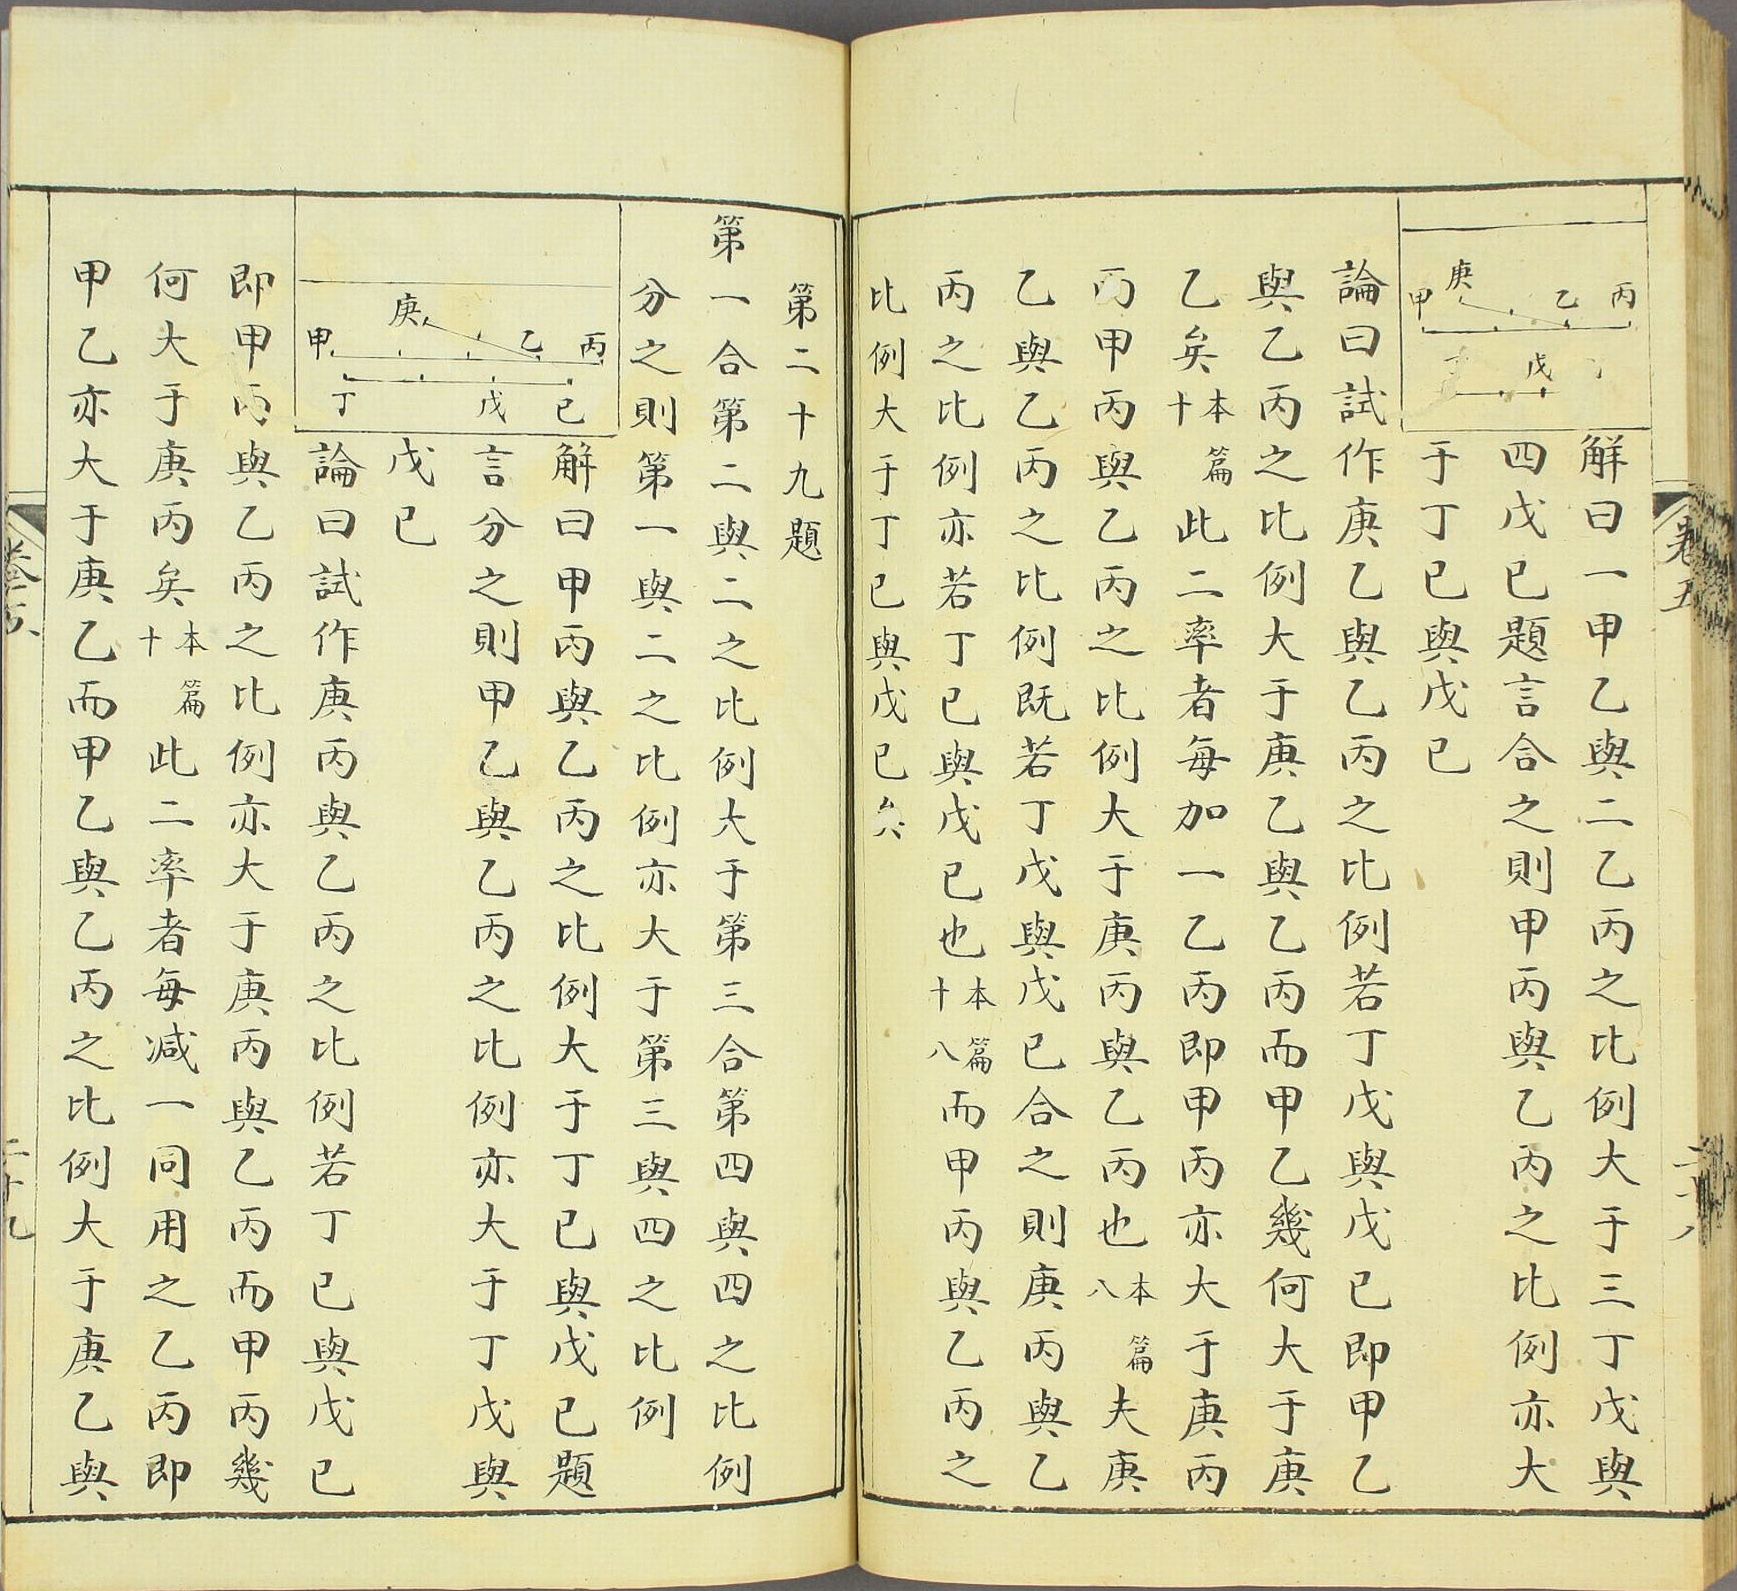 卷五
庚
甲
乙
丙
戊
解曰一甲乙與二乙丙之比例大于三丁戊與
四戊已題言合之則甲丙與乙丙之比例亦大
于丁已與戊已
論曰試作庚乙與乙丙之比例若丁戊與戊已即甲乙
與乙丙之比例大于庚乙與乙丙而甲乙幾何大于庚
乙矣本篇十此二率者每加一乙丙即甲丙亦大于庚丙
丙甲丙與乙丙之比例大于庚丙與乙丙也本篇八夫庚
乙與乙丙之比例既若丁戊與戊已合之則庚丙與乙
丙之比例亦若丁已與戊已也本篇十八而甲丙與乙丙之
比例大于丁已與戊已矣
第二十九題
第一合第二與二之比例大于第三合第四與四之比例
分之則第一與二之比例亦大于第三與四之比例
庚
甲
乙
丙
丁
戊
已
解曰甲丙與乙丙之比例大于丁已與戊已題
言分之則甲乙與乙丙之比例亦大于丁戊與
戊已
論曰試作庚丙與乙丙之比例若丁已與戊已
即甲丙與乙丙之比例亦大于庚丙與乙丙而甲丙幾
何大于庚丙矣本篇十此二率者每減一同用之乙丙即
甲乙亦大于庚乙而甲乙與乙丙之比例大于庚乙與